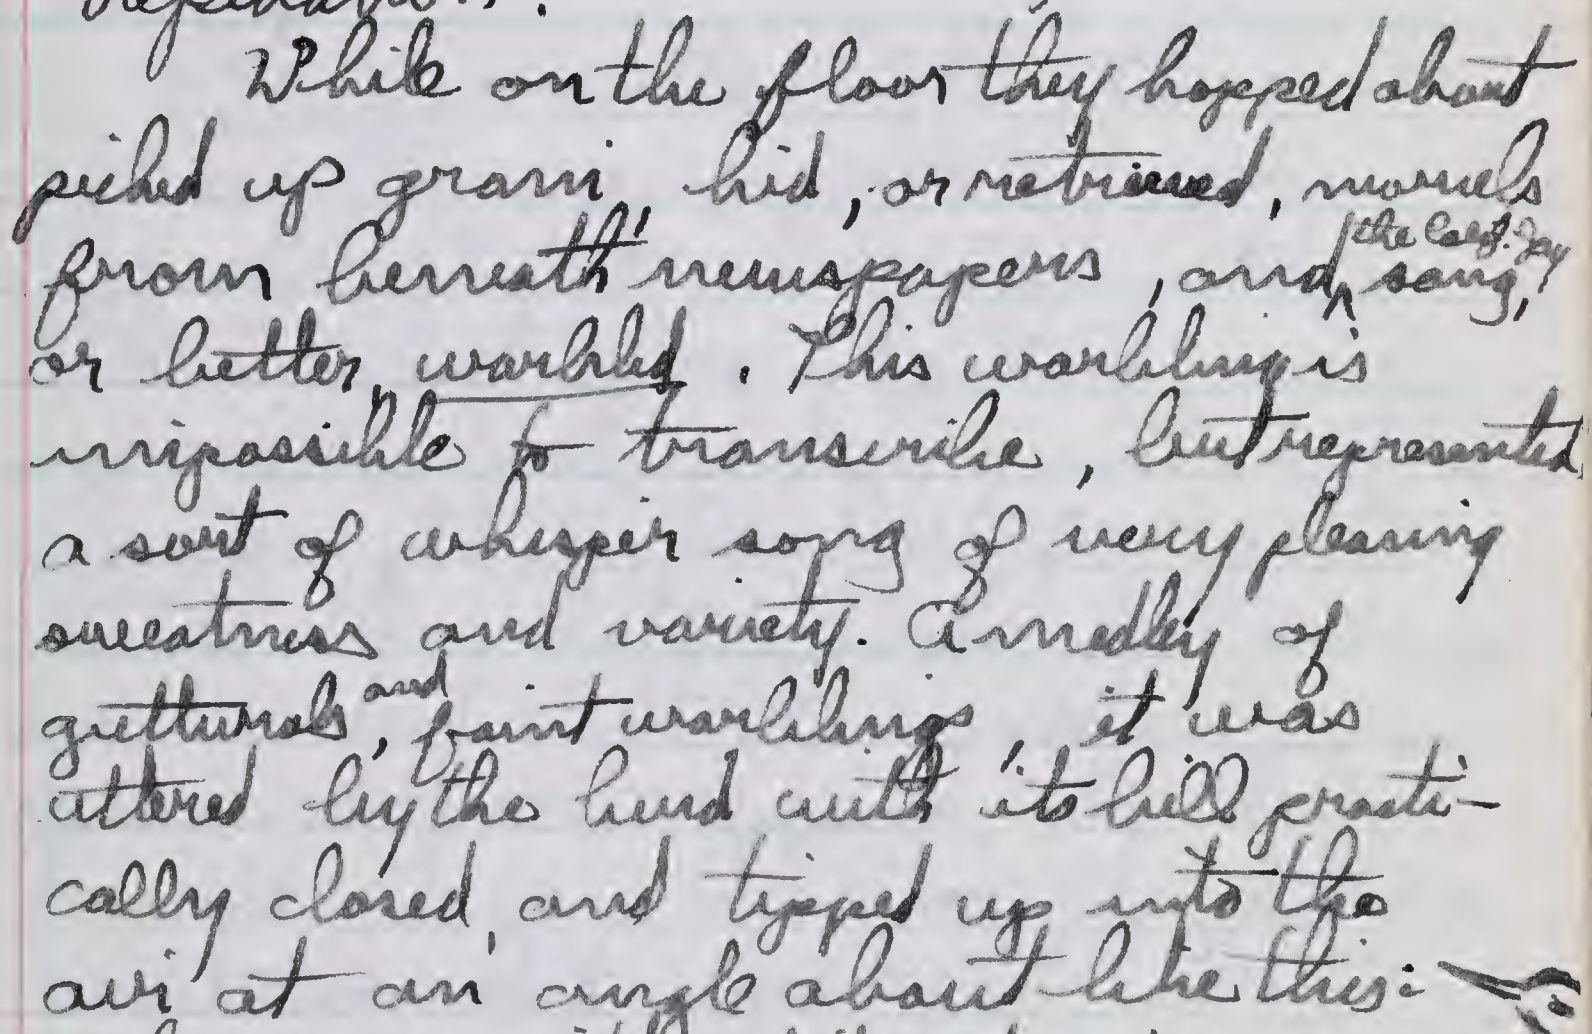 While on the floor they hopped about
picked up grain, hid, or retrieved, morsels
from beneath newspapers, and ^ the Calif. Jay song,
or better, warbled. This warbling is
impossible to transcribe, but represented
a sort of whisper song of very pleasing
sweetness and variety. A medley of
gutturals, and faint warblings, it was
uttered by the bird with its bill practi-
cally closed, and tipped up into the
air at an angle about like this: